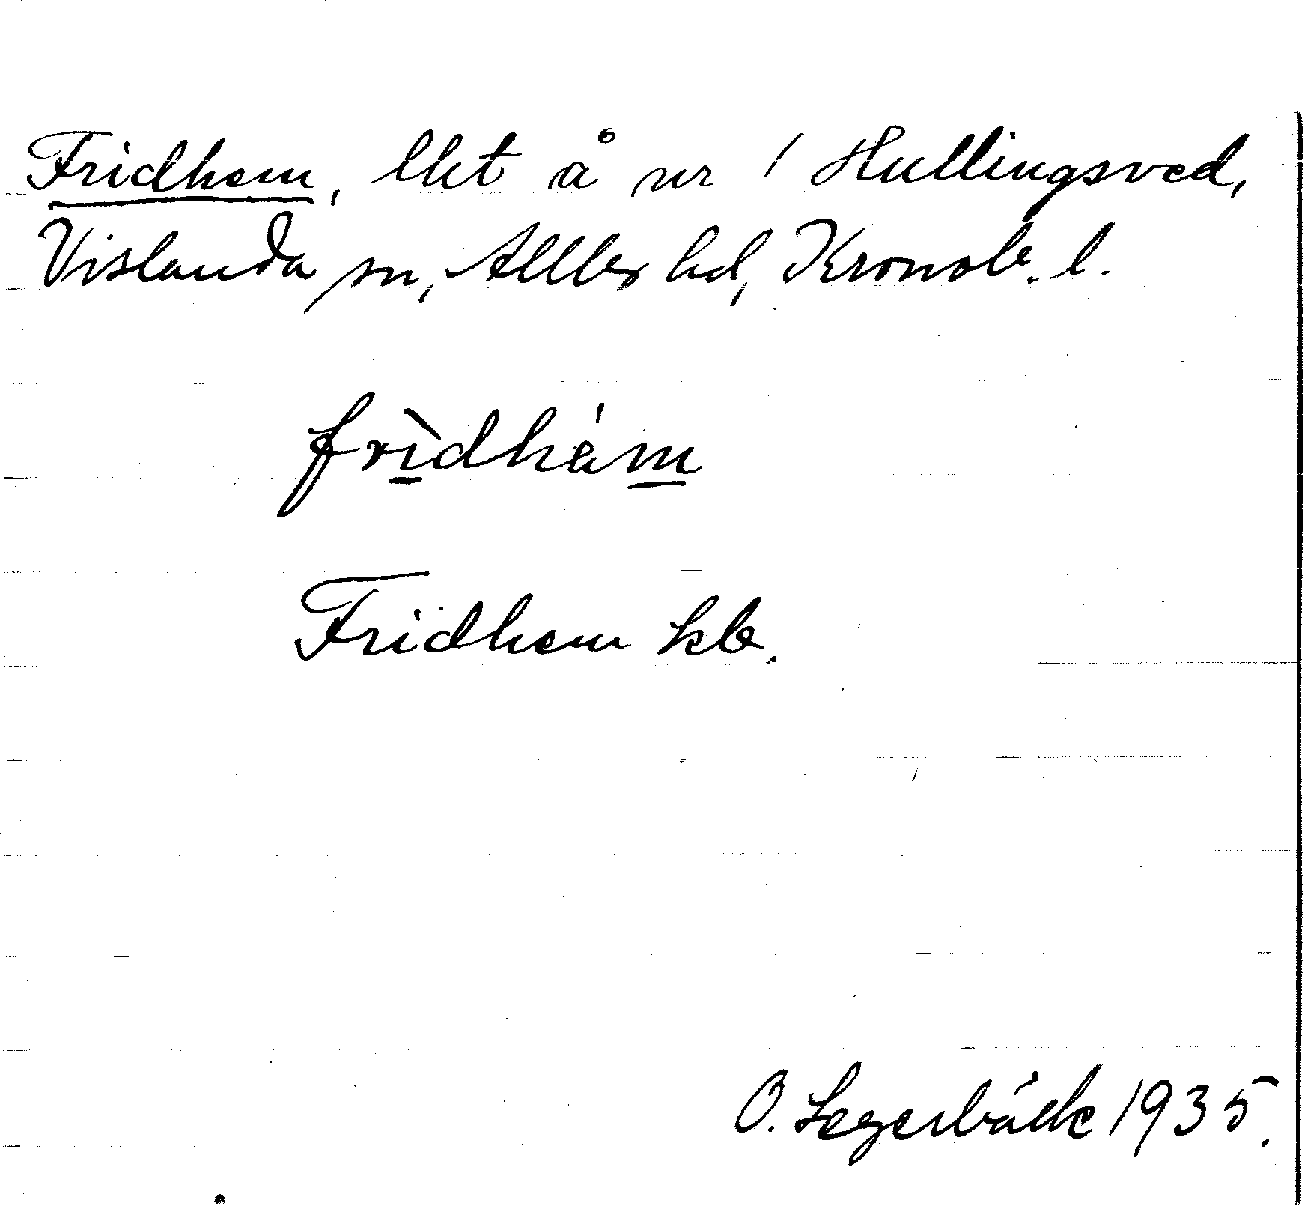 Fridhem, lht å nr 1 Hullingsved,
Vislanda sn, Allbo hd, Kronob. l.
frìdhám
Fridhem kb.
O. Segerbäck 1935.